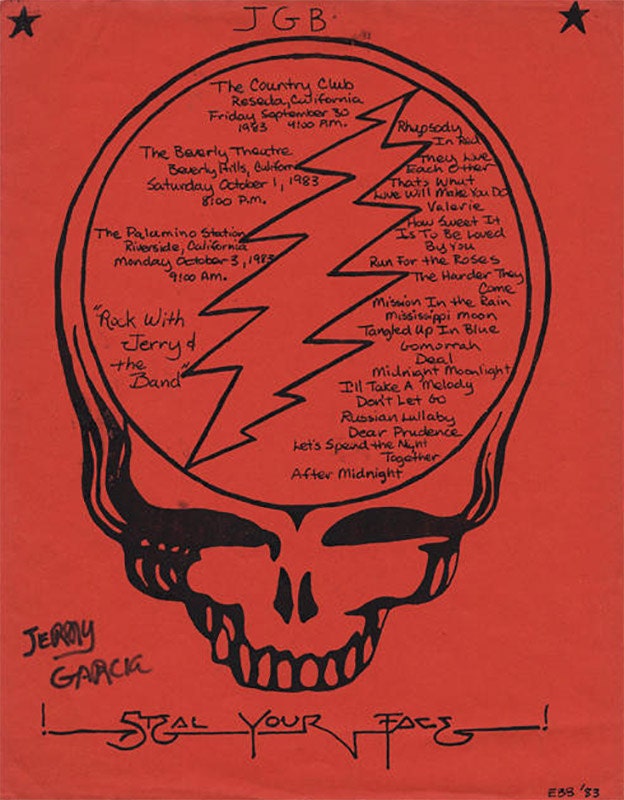 JGB
The Country Club
Reseda, California
Friday September 30
1983 9:00 P.M.
The Beverly Theatre
Beverly Hills, California
Saturday October 1, 1983
8:00 P.M.
The Palamino Station
Riverside, California
Monday October 3, 1983
9:00 AM.
"Rock With
Jerry &
the
Band"
Rhapsody
In Red
They Love
Each Other
Thats What
Love Will Make You Do
Valerie
How Sweet It
Is To Be Loved
By You
Run For the Roses
The Harder They
Come
Mission In the Rain
Mississippi Moon
Tangled Up In Blue
Gomorrah
Deal
Midnight Moonlight
I'll Take A Melody
Don't Let Go
Russian Lullaby
Dear Prudence
Let's Spend the Night
Together
After Midnight
JERRY
GARCIA
! STEAL YOUR FACE !
EBB '83